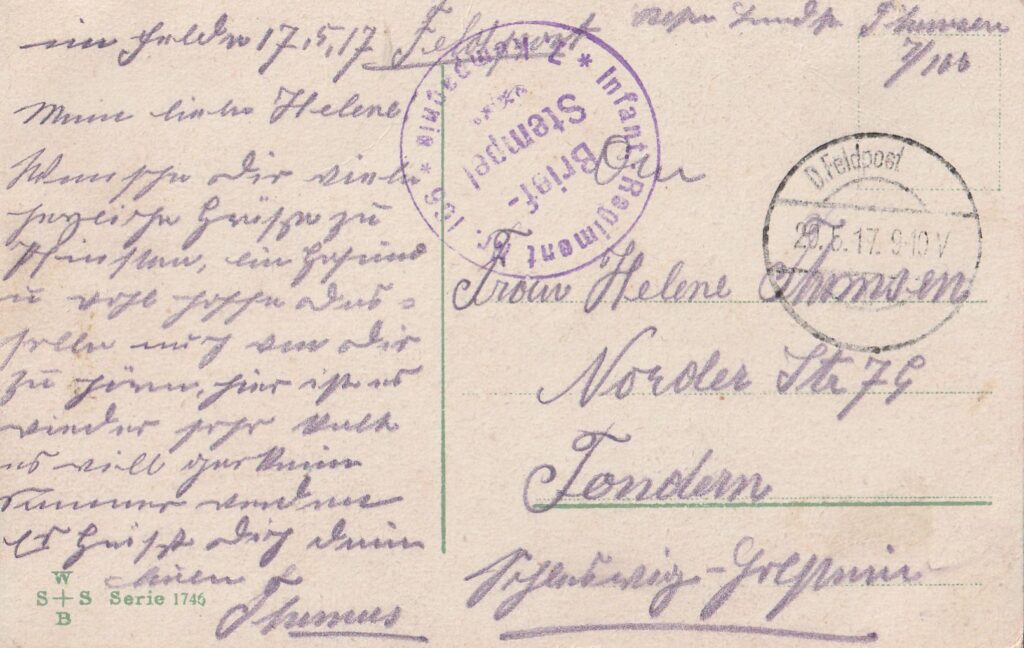 im Felde 17,5,17 Feldpost
Landst Thomsen
7/166
Mein liebe Helene
Wünsche Dir viele
herzliche Grüße zu
Pfinsten, bin Gesund
u wohl hoffe das-
selbe auch von Dir
zu hören, hier ist es
wieder sehr kalt
es will gar kein
Sommer werden
Es Grüßt Dich Dein
Thomas
W
S+S Serie 1746
B
* Infant. Regiment Nr. 166 * 7. Kompagnie
Brief-
Stempel
D. Feldpost
20.5.17. 9-10 V
An
Frau Helene Thomsen
Norder Str 79
Tondern
Schleswig-Holstein